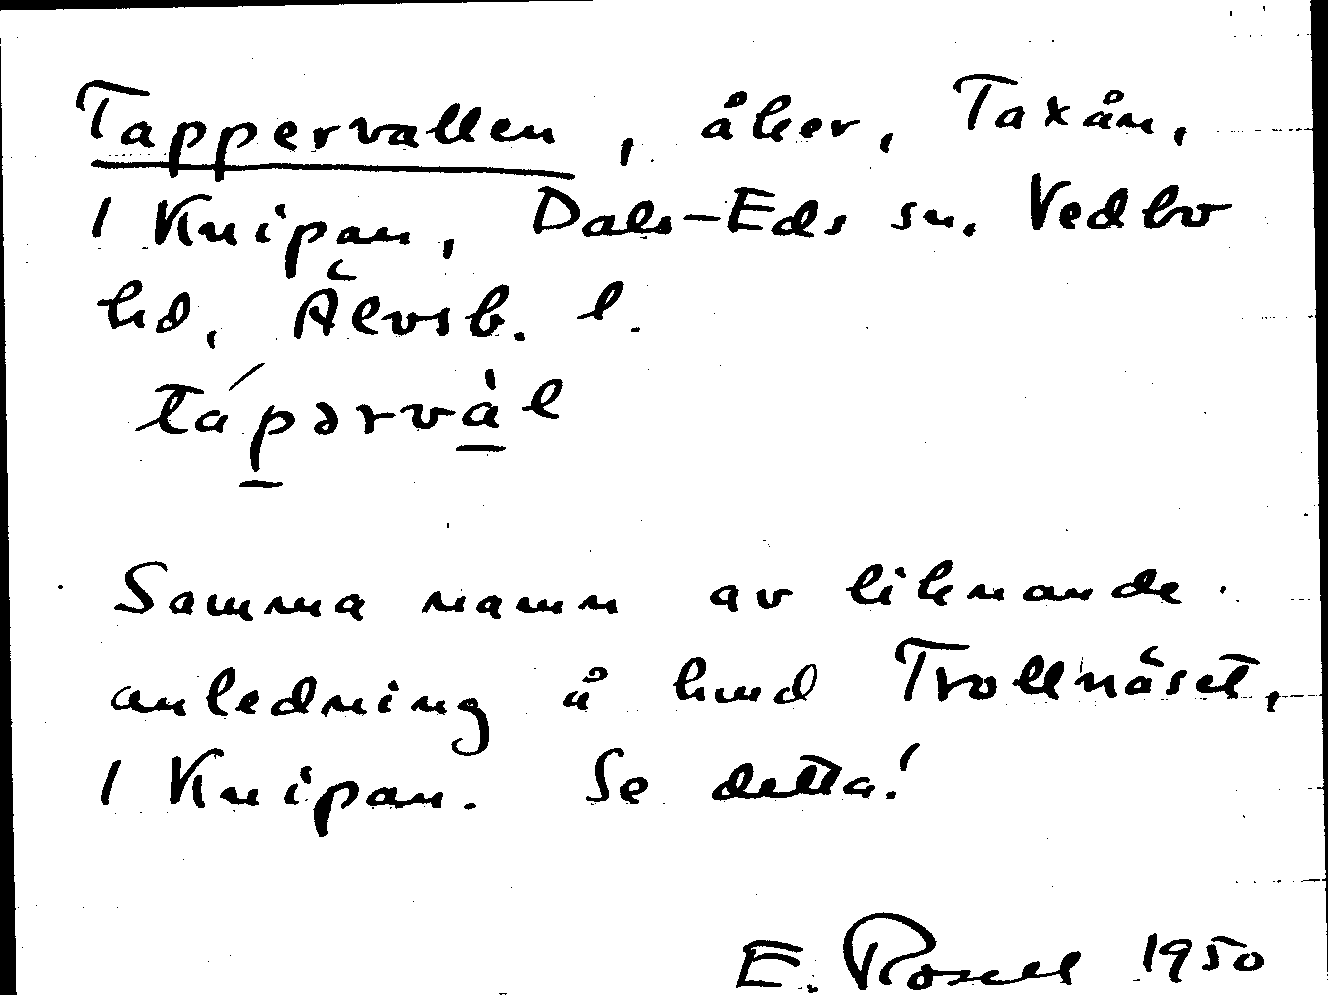 Tappervallen, åker, Taxån,
1 Knipan, Dals-Eds sn. Vedbo
hd, Älvsb. l.
tápərvàl
Samma namn av liknande
anledning å hmd Trollnäset,
1 Knipan. Se detta!
E. Rosell 1950